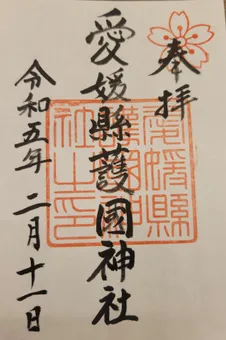 奉拝
愛媛縣護國神社
令和五年二月十一日
愛媛縣
護國神
社之印